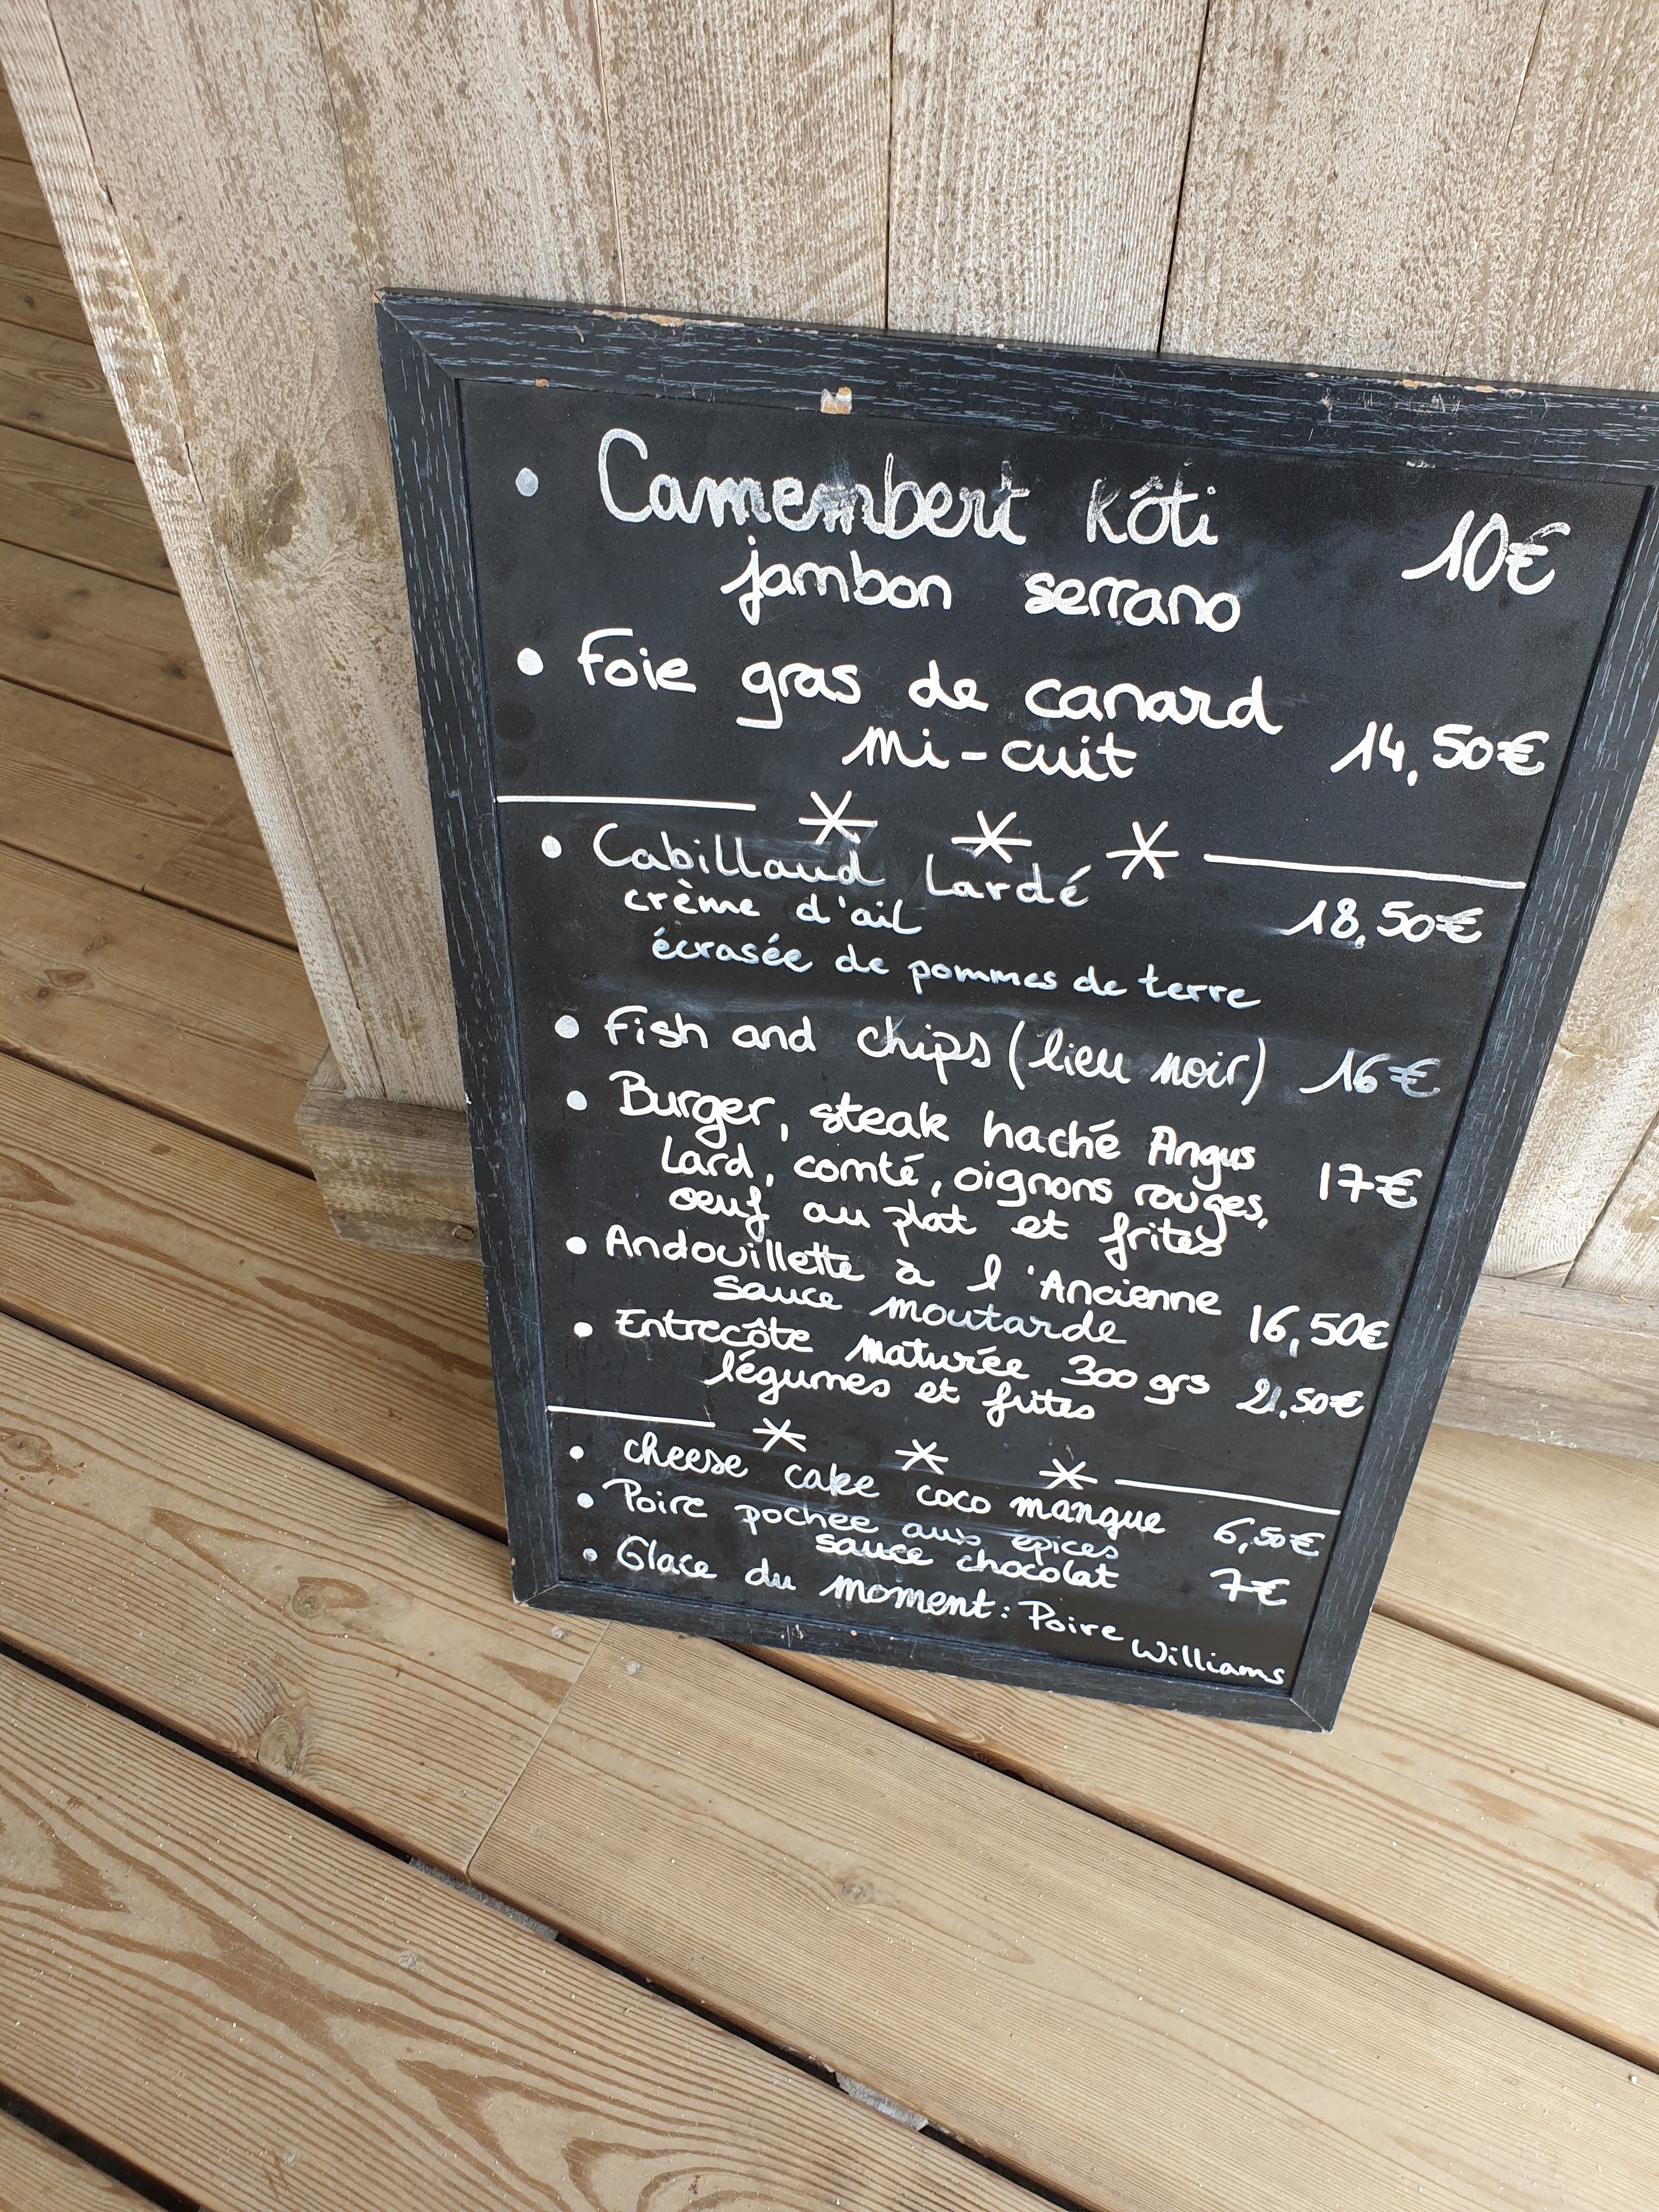 • Camembert Rôti 10€
jambon serrano
• Foie gras de canard
mi-cuit 14,50€
* * *
• Cabillaud Lardé 18,50€
crème d'ail
écrasée de pommes de terre
• Fish and chips (lieu noir) 16€
• Burger, steak haché Angus
Lard, comté, oignons rouges, 17€
oeuf au plat et frites
• Andouillette à l'Ancienne
sauce moutarde 16,50€
• Entrecôte maturée 300 grs
légumes et frites 21,50€
* * *
• cheese cake coco mangue 6,50€
• Poire pochée aux épices
sauce chocolat 7€
• Glace du moment: Poire
Williams